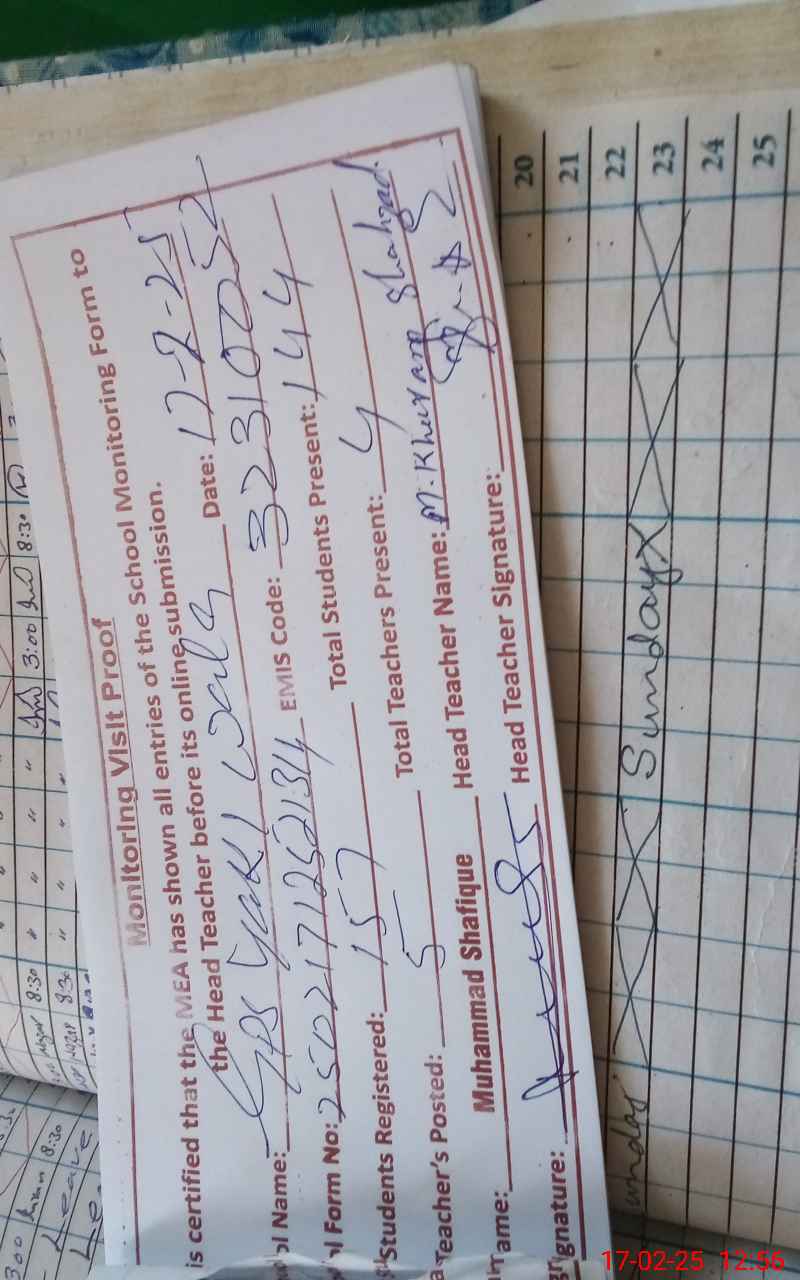 Monitoring Visit Proof
is certified that the MEA has shown all entries of the School Monitoring Form to
the Head Teacher before its online submission.
ol Name: GPS Yaki Wala Date: 17-2-25
ol Form No: 2502171252134 EMIS Code: 32310052
Students Registered: 157 Total Students Present: 144
Teacher's Posted: 5 Total Teachers Present: 4
ame: Muhammad Shafique Head Teacher Name: M. Khurram Shahzad
gnature: Head Teacher Signature:
20
21
22
23
24
25
unday Sunday
3:00 8:30
8:30
8:30
3:00 8:30
Leave
17-02-25 12:56